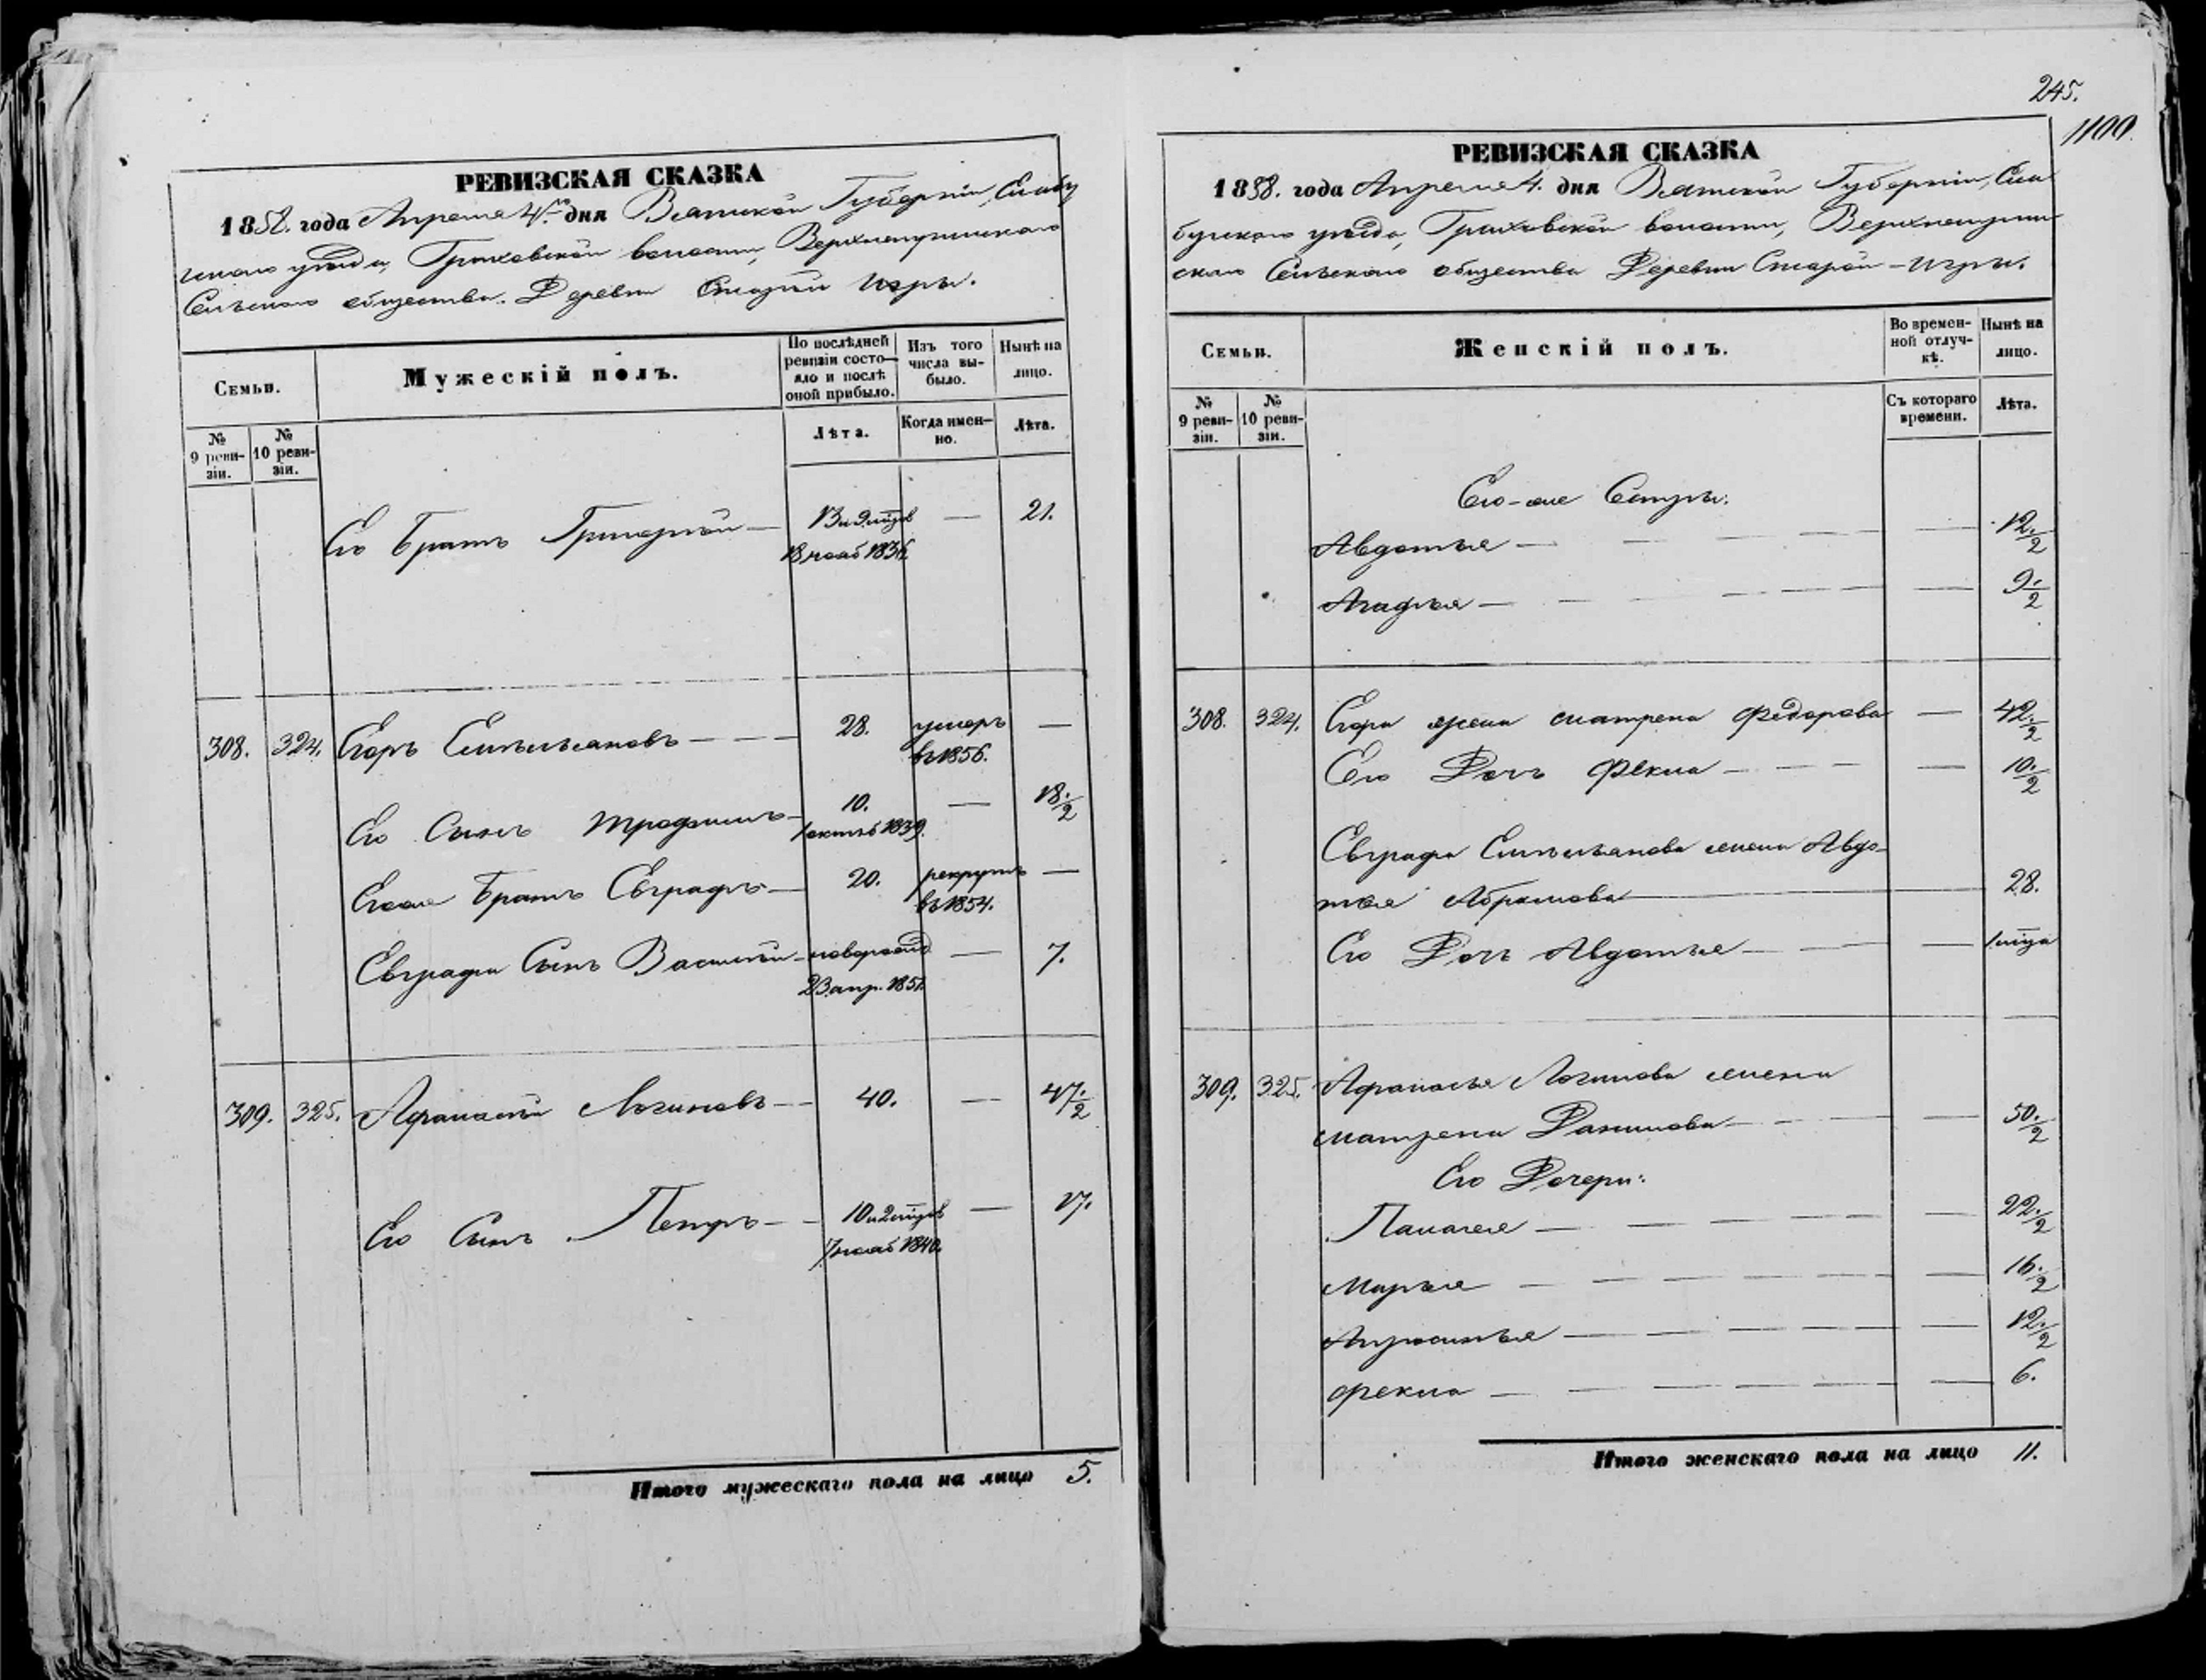 РЕВИЗСКАЯ СКАЗКА
1858. года Апреля 4го дня Вятской Губерніи, Елабу
жскаго уѣзда, Граховской волости,
Сельскаго общества. Деревни Старой Игры.
Семьи.
Мужескій полъ.
По послѣдней ревизіи состояло и послѣ оной прибыло.
Изъ того числа выбыло.
Нынѣ на лицо.
№ 9 ревизіи.
№ 10 ревизіи.
Лѣта.
Когда именно.
Лѣта.
Его Братъ Григорій — 13 и 9 мцов — 21.
18 нояб 1836
308. 324. Егоръ Емельяновъ — 28. умеръ —
въ 1856.
Его Сынъ Трофимъ — 10. — 18.1/2
1 октяб 1839.
Егоже Братъ Евграфъ — 20. рекрутъ —
въ 1854.
Евграфа Сынъ Василій — новорожд — 7.
23 апр. 1851.
309. 325. Афанасій Логиновъ — 40. — 47.1/2
Его Сынъ Петръ — 10 и 2 мцов — 17.
7 нояб 1840.
Итого мужескаго пола на лицо 5.
245.
1100.
РЕВИЗСКАЯ СКАЗКА
1858. года Апреля 4. дня Вятской Губерніи, Ела
бужскаго уѣзда, Граховской волости,
Сельскаго общества Деревни Старой-Игры.
Семьи.
Женскій полъ.
Во временной отлучкѣ.
Нынѣ на лицо.
№ 9 ревизіи.
№ 10 ревизіи.
Съ котораго времени.
Лѣта.
Его-же Сестры:
Авдотья — — 12.1/2
Агафья — — 9.1/2
308. 324. Егора жена Матрена Федорова — 42.1/2
Его Дочь Фекла — — 10.1/2
Евграфа Емельянова жена Авдо-
тья Абрамова — 28.
Его Дочь Авдотья — — 1 мца
309. 325. Афанасья Логинова жена
Матрена Данилова — — 50.1/2
Его Дочери:
Палагея — — 22.1/2
Марья — — 16.1/2
— — 12.1/2
Фекла — — 6.
Итого женскаго пола на лицо 11.